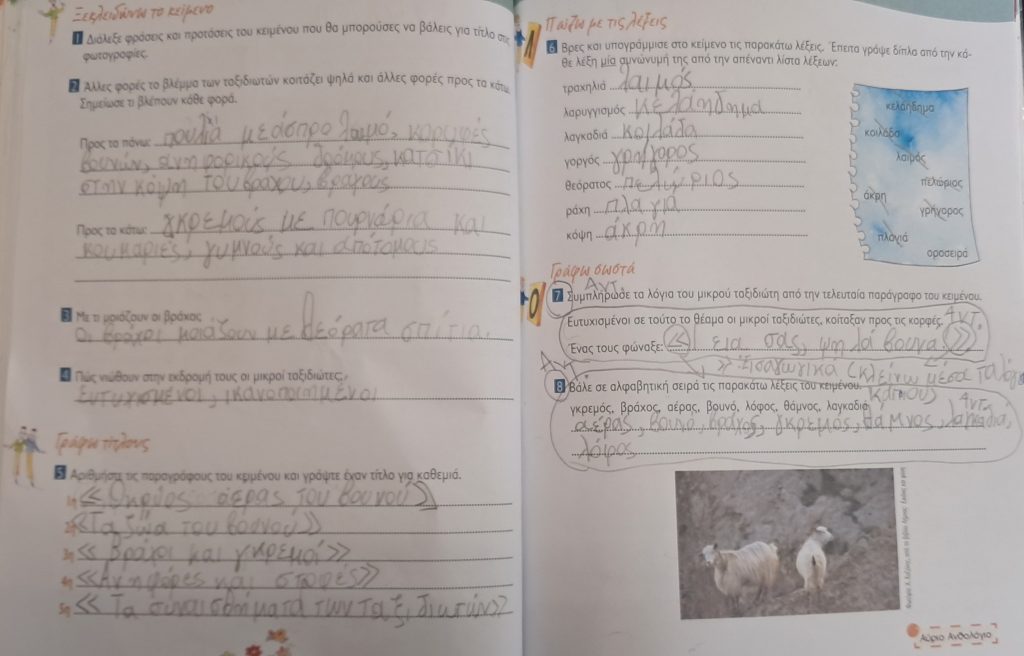 Ξεκλειδώνω το κείμενο
1 Διάλεξε φράσεις και προτάσεις του κειμένου που θα μπορούσες να βάλεις για τίτλο στις
φωτογραφίες.
2 Άλλες φορές το βλέμμα των ταξιδιωτών κοιτάζει ψηλά και άλλες φορές προς τα κάτω.
Σημείωσε τι βλέπουν κάθε φορά.
Προς τα πάνω: πουλιά με άσπρο λαιμό, κορυφές
βουνών, ανηφορικούς δρόμους, κατσίκι
στην κόψη του βράχου, βράχους
Προς τα κάτω: γκρεμούς με πουρνάρια και
κουμαριές, γυμνούς και απότομους
3 Με τι μοιάζουν οι βράχοι;
Οι βράχοι μοιάζουν με θεόρατα σπίτια.
4 Πώς νιώθουν στην εκδρομή τους οι μικροί ταξιδιώτες;
Ευτυχισμένοι, ικανοποιημένοι
Γράφω τίτλους
5 Αρίθμησε τις παραγράφους του κειμένου και γράψε έναν τίτλο για καθεμιά.
1η «Ο κρύος αέρας του βουνού»
2η «Τα ζώα του βουνού»
3η «Βράχοι και γκρεμοί»
4η «Ανηφόρες και στροφές»
5η «Τα συναισθήματα των ταξιδιωτών»
Παίζω με τις λέξεις
6 Βρες και υπογράμμισε στο κείμενο τις παρακάτω λέξεις. Έπειτα γράψε δίπλα από την κά-
θε λέξη μία συνώνυμή της από την απέναντι λίστα λέξεων:
τραχηλιά λαιμός
λαρυγγισμός κελάηδημα
λαγκαδιά κοιλάδα
γοργός γρήγορος
θεόρατος πελώριος
ράχη πλαγιά
κόψη άκρη
κελάηδημα
κοιλάδα
λαιμός
πελώριος
άκρη
γρήγορος
πλαγιά
οροσειρά
Γράφω σωστά
Αντ.
7 Συμπλήρωσε τα λόγια του μικρού ταξιδιώτη από την τελευταία παράγραφο του κειμένου.
Ευτυχισμένοι σε τούτο το θέαμα οι μικροί ταξιδιώτες, κοίταξαν προς τις κορφές. Αντ.
Ένας τους φώναξε: « Γεια σας, ψηλά βουνά »
Αντ. » Εισαγωγικά (κλείνω μέσα τα λόγια
κάποιου
8 Βάλε σε αλφαβητική σειρά τις παρακάτω λέξεις του κειμένου.
γκρεμός, βράχος, αέρας, βουνό, λόφος, θάμνος, λαγκαδιά Αντ.
αέρας, βουνο, βράχος, γκρεμός, θάμνος, λαγκαδιά,
λόφος
Αύριο Ανθολόγιο